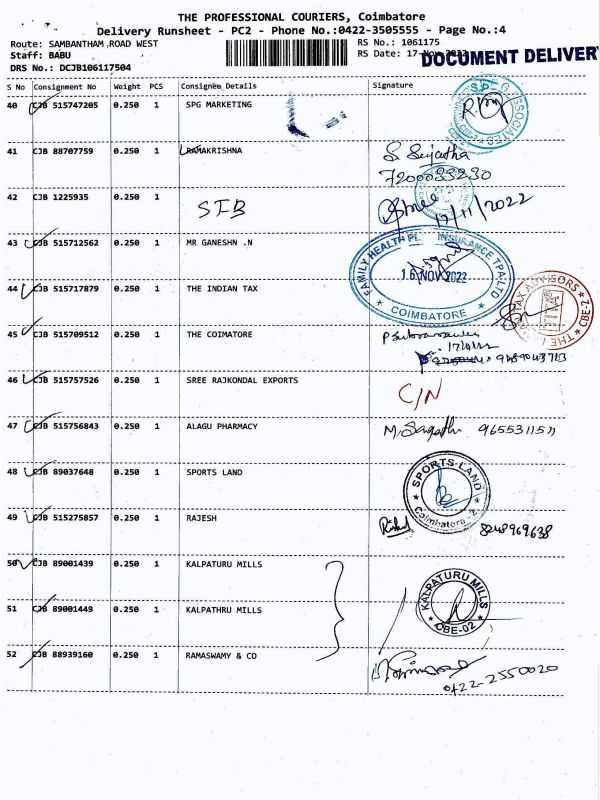 THE PROFESSIONAL COURIERS, Coimbatore
Delivery Runsheet - PC2 - Phone No.:0422-3505555 - Page No.:4
Route: SAMBANTHAM ,ROAD WEST
Staff: BABU
DRS No.: DCJB106117504
RS No.: 1061175
RS Date: 17-Nov-2022
DOCUMENT DELIVER
S No Consignment No Weight PCS Consignee Details Signature
40 CJB 515747205 0.250 1 SPG MARKETING
41 CJB 88707759 0.250 1 RAMAKRISHNA
7200033230
42 CJB 1225935 0.250 1 SIB
17/11/2022
43 CJB 515712562 0.250 1 MR GANESHN .N
FAMILY HEALTH PL INSURANCE TPA LTD
16 NOV 2022
COIMBATORE
44 CJB 515717879 0.250 1 THE INDIAN TAX
TAX ADVISORS
CBE-2
45 CJB 515709512 0.250 1 THE COIMATORE
46 CJB 515757526 0.250 1 SREE RAJKONDAL EXPORTS C/N
47 CJB 515756843 0.250 1 ALAGU PHARMACY
48 CJB 89037648 0.250 1 SPORTS LAND
SPORTS LAND
Coimbatore - 2
49 CJB 515275857 0.250 1 RAJESH 8248969638
50 CJB 89001439 0.250 1 KALPATURU MILLS
KALPATURU MILLS
CBE-02
51 CJB 89001449 0.250 1 KALPATHRU MILLS
52 CJB 88939160 0.250 1 RAMASWAMY & CO
0422-2550020